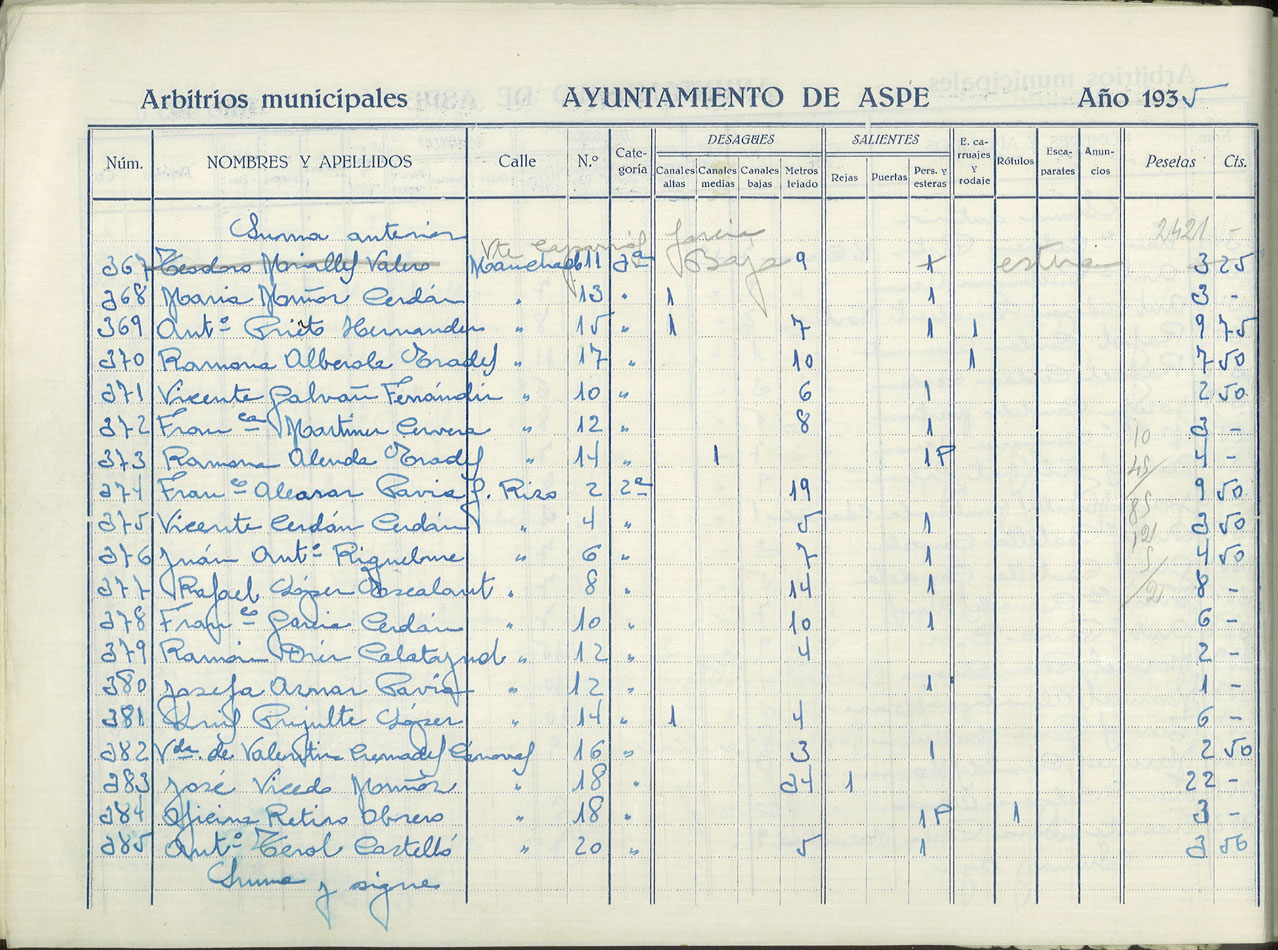 Arbitrios municipales AYUNTAMIENTO DE ASPE Año 1935
Núm. NOMBRES Y APELLIDOS Calle N.º Cate-goría DESAGÜES Canales altas Canales medias Canales bajas Metros tejado SALIENTES Rejas Puertas Pers. y esteras E. ca-rruajes y rodaje Rótulos Esca-parates Anun-cios Pesetas Cts.
Suma anterior 2421 -
Vte Caparrós García
367 Teodoro Valero 11 3ª Baja 9 1 3 25
368 Maria Muñoz Cerdán " 13 " 1 1 3 -
369 Antº Prieto Hernandez " 15 " 1 7 1 1 9 75
370 Ramona Alberola Prades " 17 " 10 1 7 50
371 Vicente Galvañ Fernández " 10 " 6 1 2 50
372 Franca Martinez Cervera " 12 " 8 1 3 -
10
373 Ramona Alenda Prades " 14 " 1 1P 4 -
45
374 Franco Alcaraz Pavia G. Rizo 2 2ª 19 9 50
85
375 Vicente Cerdán Cerdán " 4 " 5 1 3 50
376 Juán Antº Riquelme " 6 " 7 1 4 50
377 Rafael López " 8 " 14 1 8 -
378 Franco Garcia Cerdán " 10 " 10 1 6 -
379 Ramón Calatayud " 12 " 4 2 -
380 Josefa Aznar Pavia " 12 " 1 1 -
381 Luis Pujalte López " 14 " 1 4 6 -
382 Vda. de Valentin Cremades Cánoves " 16 " 3 1 2 50
383 José Vicedo Muñoz " 18 " 34 1 22 -
384 Oficina Retiro Obrero " 18 " 1P 1 3 -
385 Antº Terol Castelló " 20 " 5 1 3 50
Suma y sigue